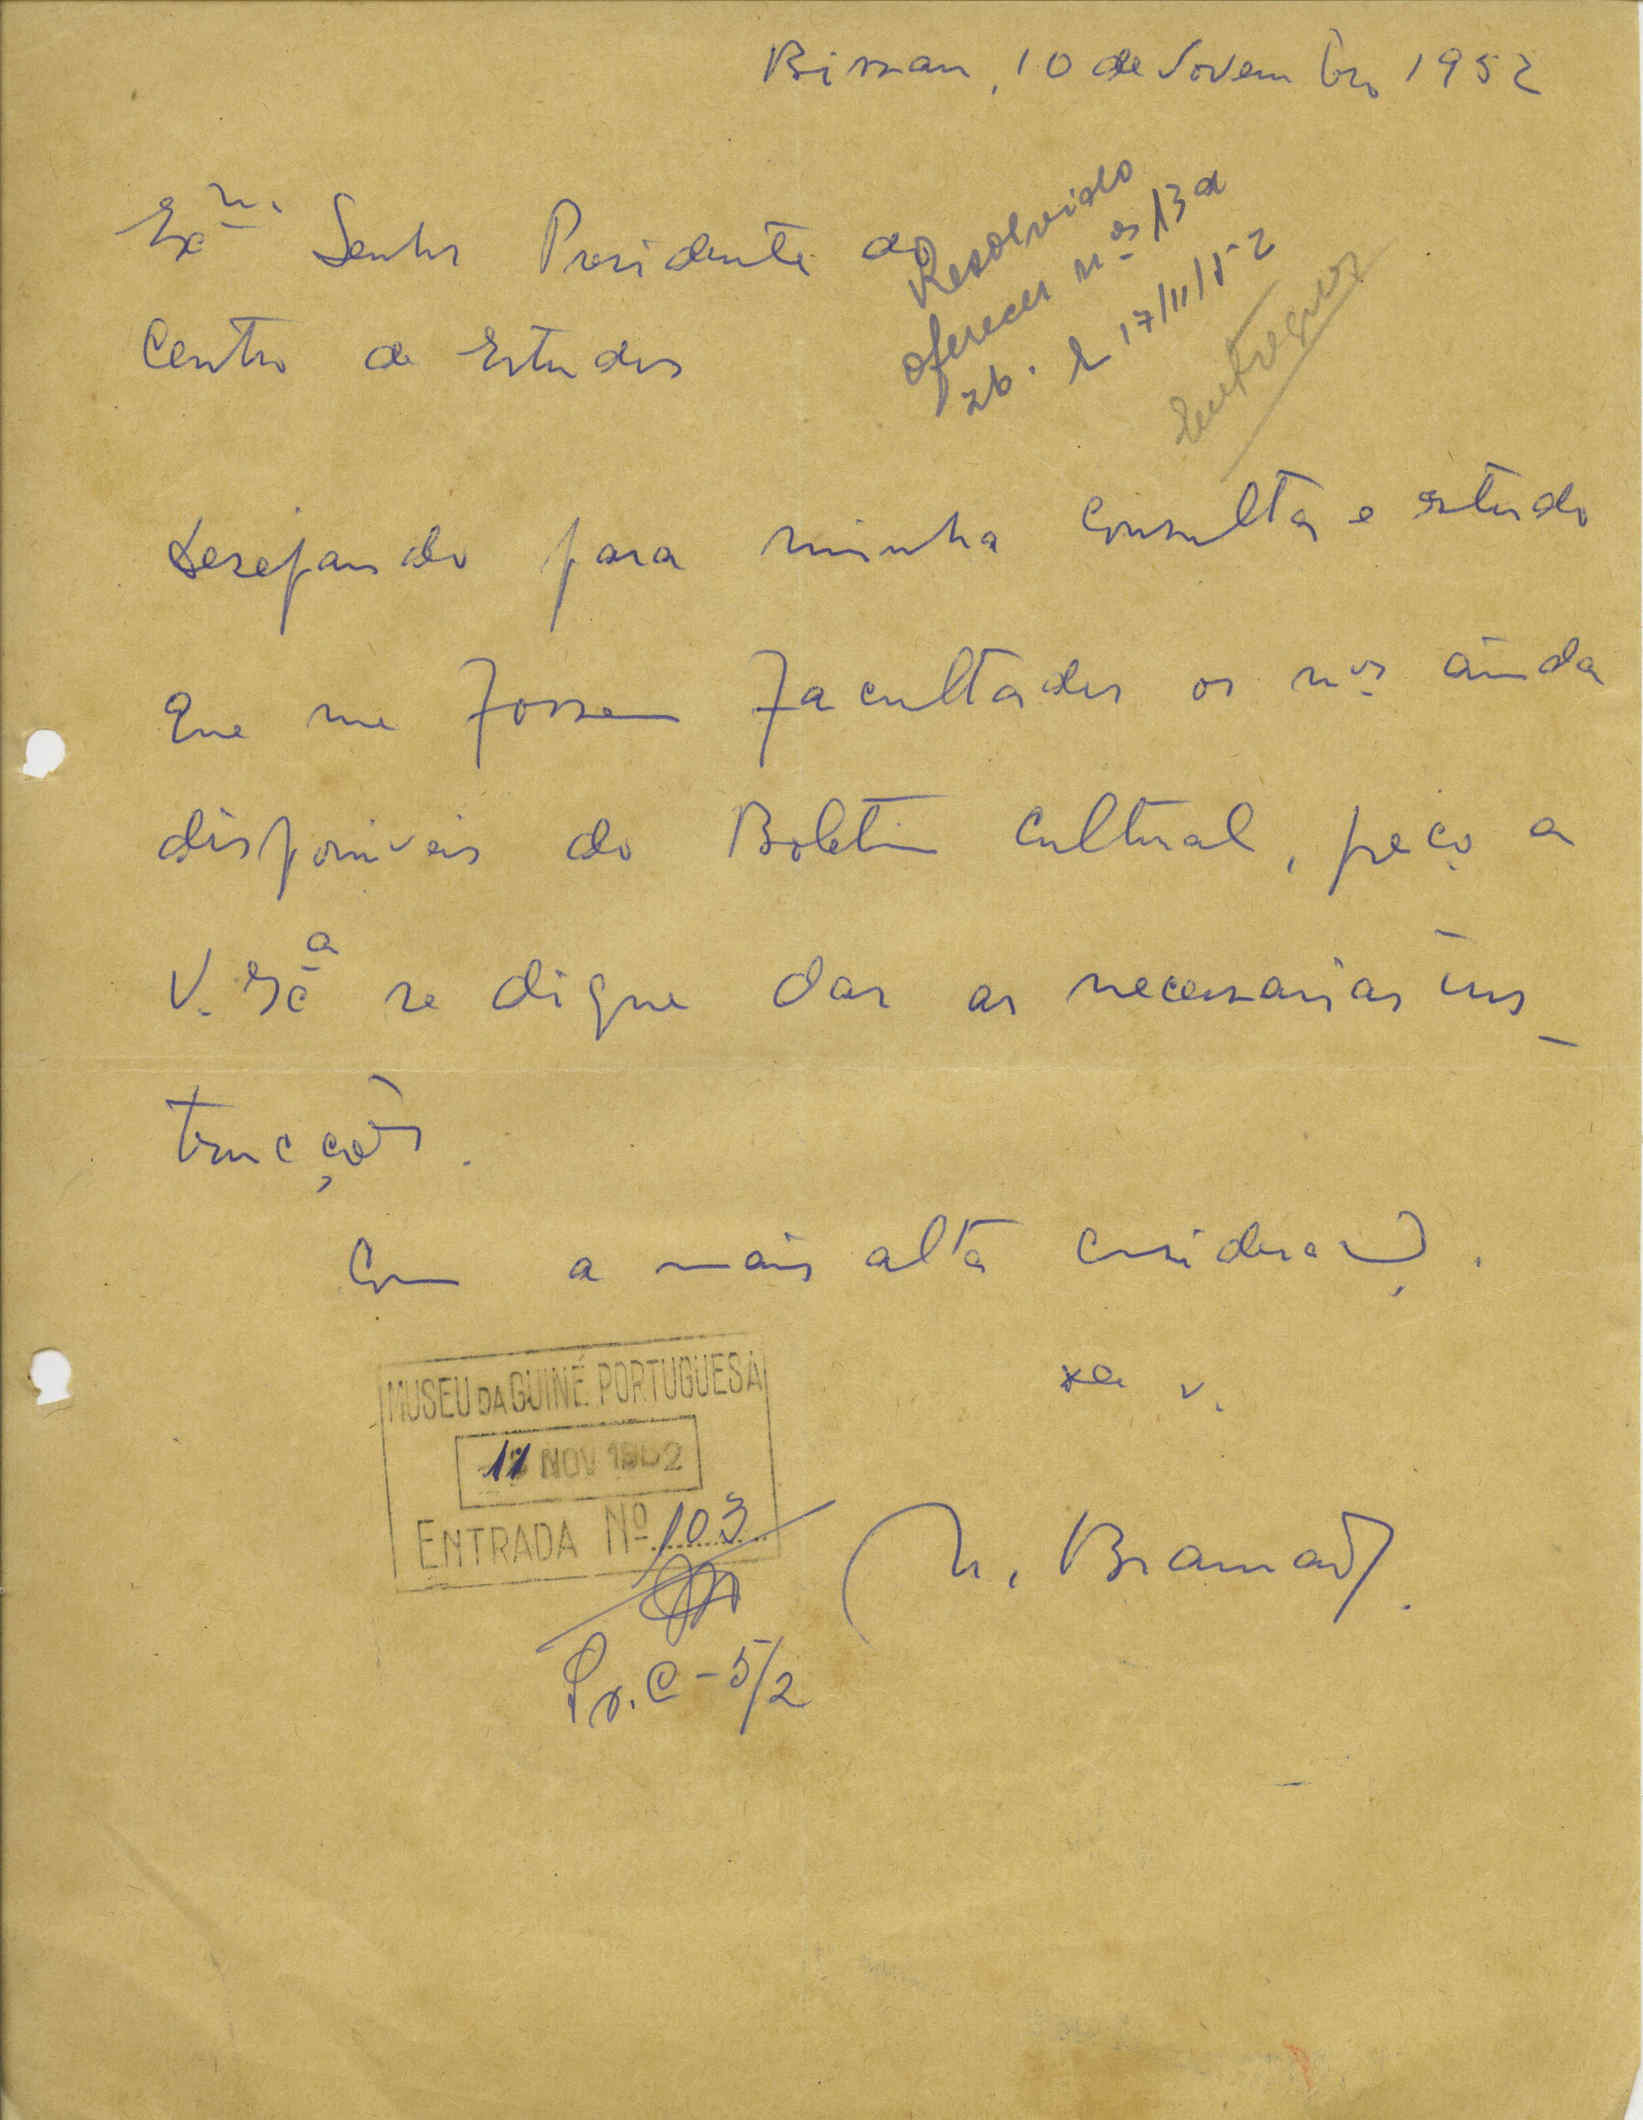 Bissau, 10 de Novembro 1952
Exmo. Senhor Presidente do
Centro de Estudos
Resolvido
oferecer nos 13 a
26. 17/11/52
Entregues
Desejando para minha consulta e estudo
que me fossem facultados os nos ainda
disponiveis do Boletim Cultural, peço a
V. Exa se digne dar as necessarias ins_
trucções.
Com a mais alta consideração.
MUSEU DA GUINÉ PORTUGUESA
17 NOV 1952
ENTRADA Nº 103
Pr. C-5/2